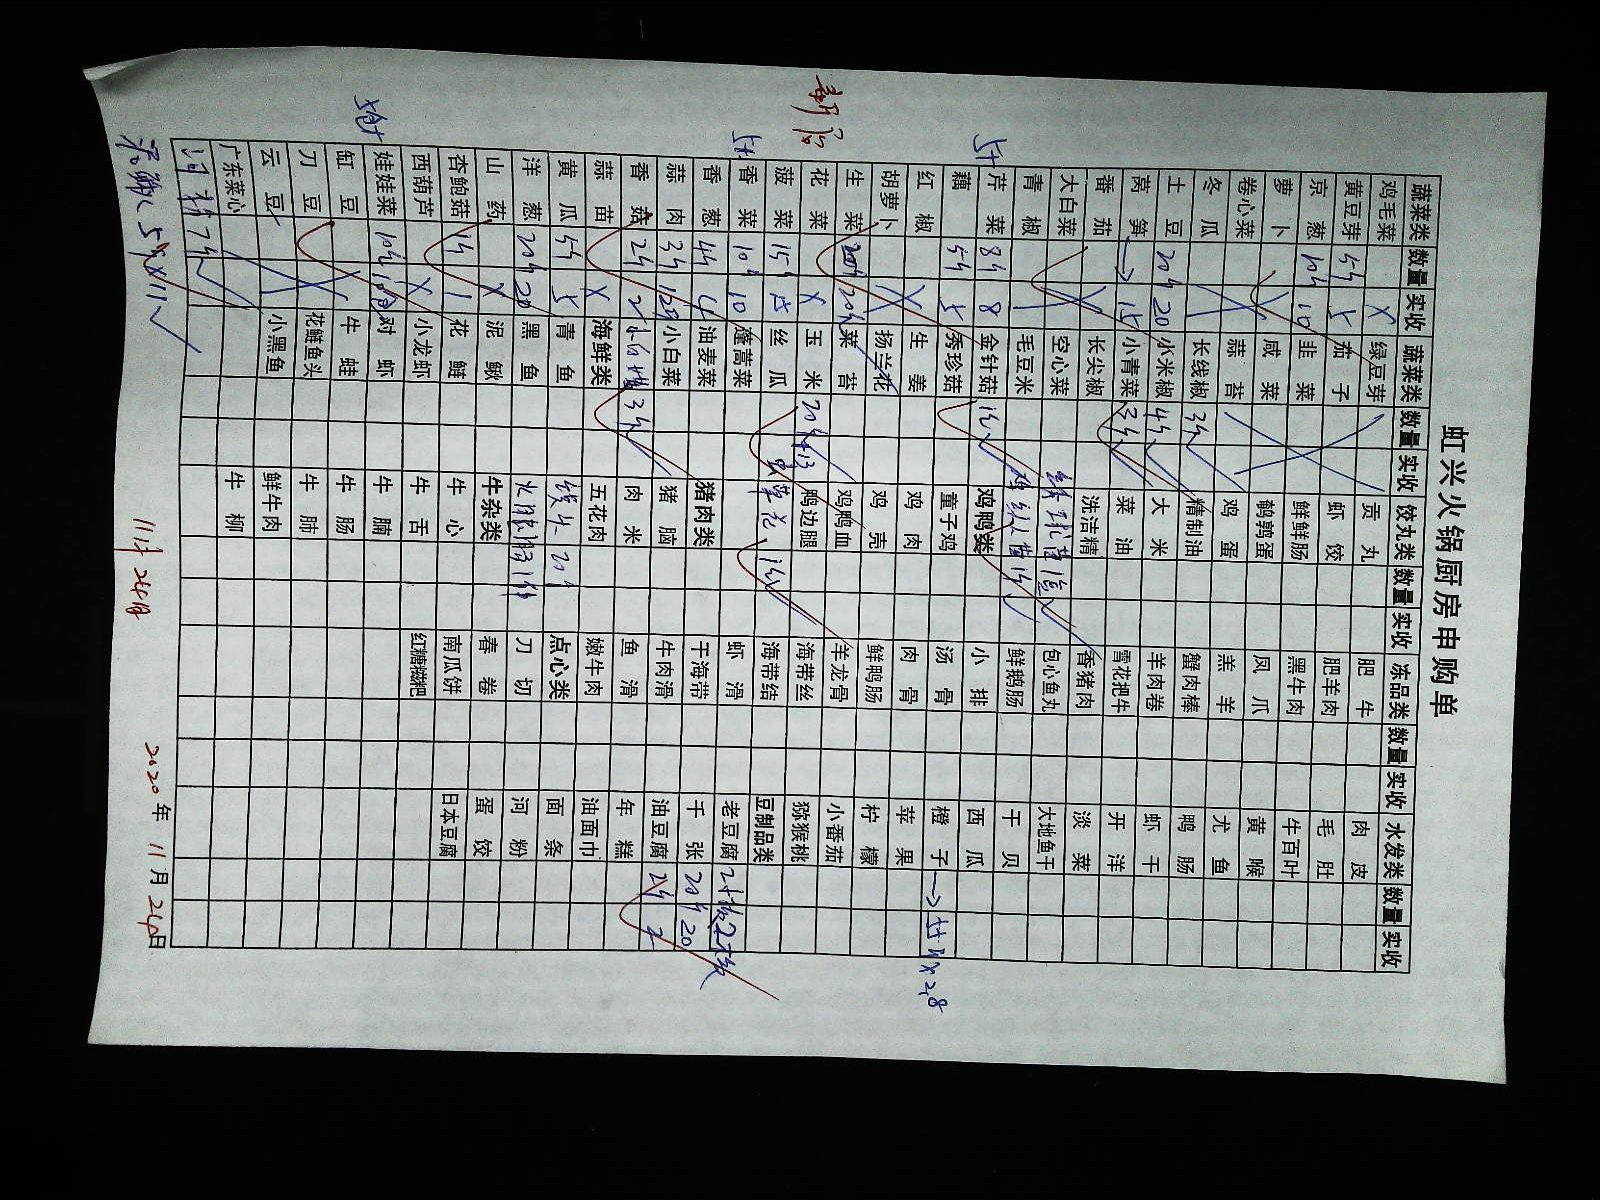 虹兴火锅厨房申购单
蔬菜类 数量 实收 蔬菜类 数量 实收 饺丸类 数量 实收 冻品类 数量 实收 水发类 数量 实收
鸡毛菜 X 绿豆芽 贡丸 肥牛 肉皮
黄豆芽 5 茄子 虾饺 肥羊肉 毛肚
京葱 10 10 韭菜 鲜鲜肠 黑牛肉 牛百叶
萝卜 咸菜 鹌鹑蛋 凤爪 黄喉
卷心菜 蒜苔 鸡蛋 羔羊 尤鱼
冬瓜 长线椒 3 精制油 蟹肉棒 鸭肠
土豆 20 20 小米椒 4 大米 羊肉卷 虾干
莴笋 15 小青菜 3 菜油 雪花把牛 开洋
番茄 长尖椒 洗洁精 香猪肉 淡菜
大白菜 空心菜 包心鱼丸 大地鱼干
青椒 毛豆米 鲜鹅肠 干贝
芹菜 8 8 金针菇 鸡鸭类 小排 西瓜
藕 5 5 秀珍菇 童子鸡 汤骨 橙子
红椒 生姜 鸡肉 肉骨 苹果
胡萝卜 X 扬兰花 鸡壳 鲜鸭肠 柠檬
生菜 20 菜苔 鸡鸭血 羊龙骨 小番茄
花菜 X 玉米 20 鸭边腿 海带丝 猕猴桃
菠菜 15 15 丝瓜 海带结 豆制品类
香菜 10 10 蓬蒿菜 虾滑 老豆腐
香葱 4 油麦菜 猪肉类 干海带 千张 20 20
蒜肉 3 小白菜 猪脑 牛肉滑 油豆腐 2 2
香菇 2 2 肉米 鱼滑 年糕
蒜苗 X 海鲜类 五花肉 嫩牛肉 油面巾
黄瓜 5 5 青鱼 点心类 面条
洋葱 20 20 黑鱼 刀切 河粉
山药 X 泥鳅 牛杂类 春卷 蛋饺
杏鲍菇 1 花鲢 牛心 南瓜饼 日本豆腐
西葫芦 X 小龙虾 牛舌 红糖糍粑
娃娃菜 10 对虾 牛腩
缸豆 牛蛙 牛肠
刀豆 花鲢鱼头 牛肺
云豆 小黑鱼 鲜牛肉
广东菜心 牛柳
11月24日
2020年11月24日